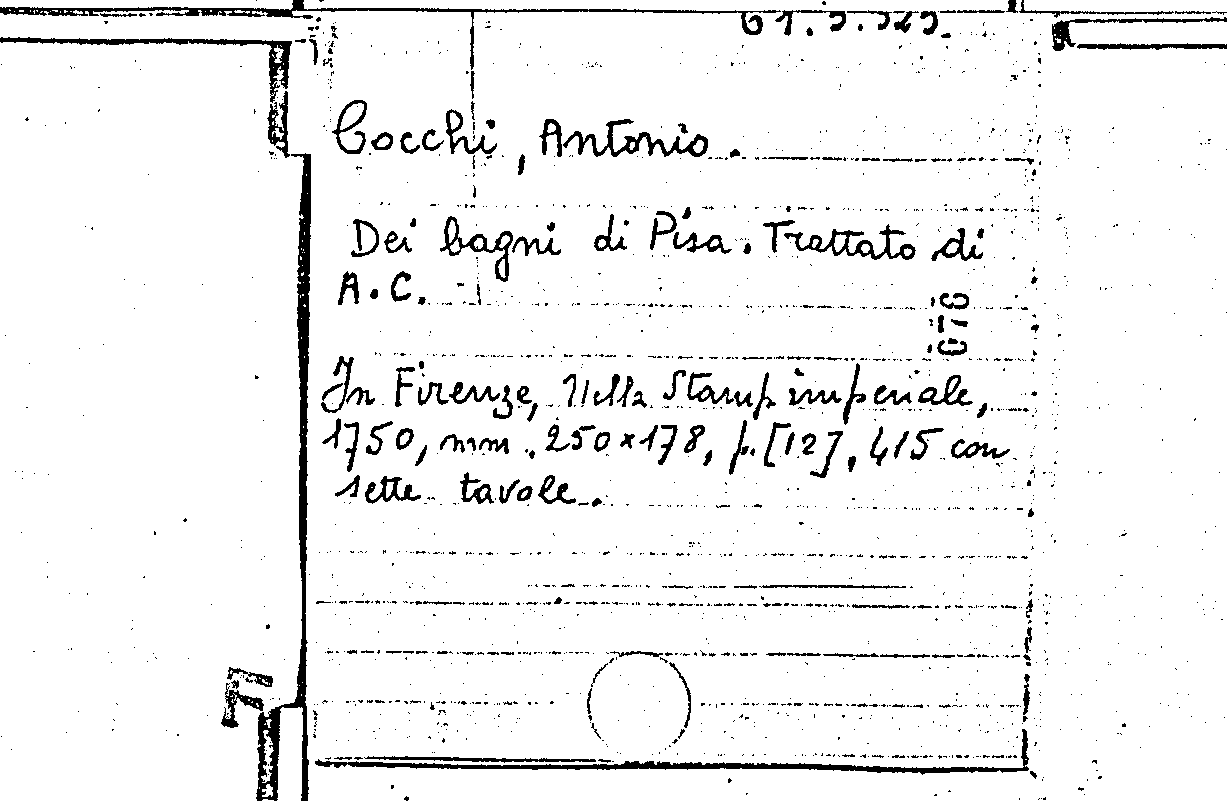 Cocchi, Antonio.
Dei bagni di Pisa. Trattato di
A.C.
In Firenze, Nella Stamp. imperiale,
1750, mm. 250×178, p. [12], 415 con
sette tavole.